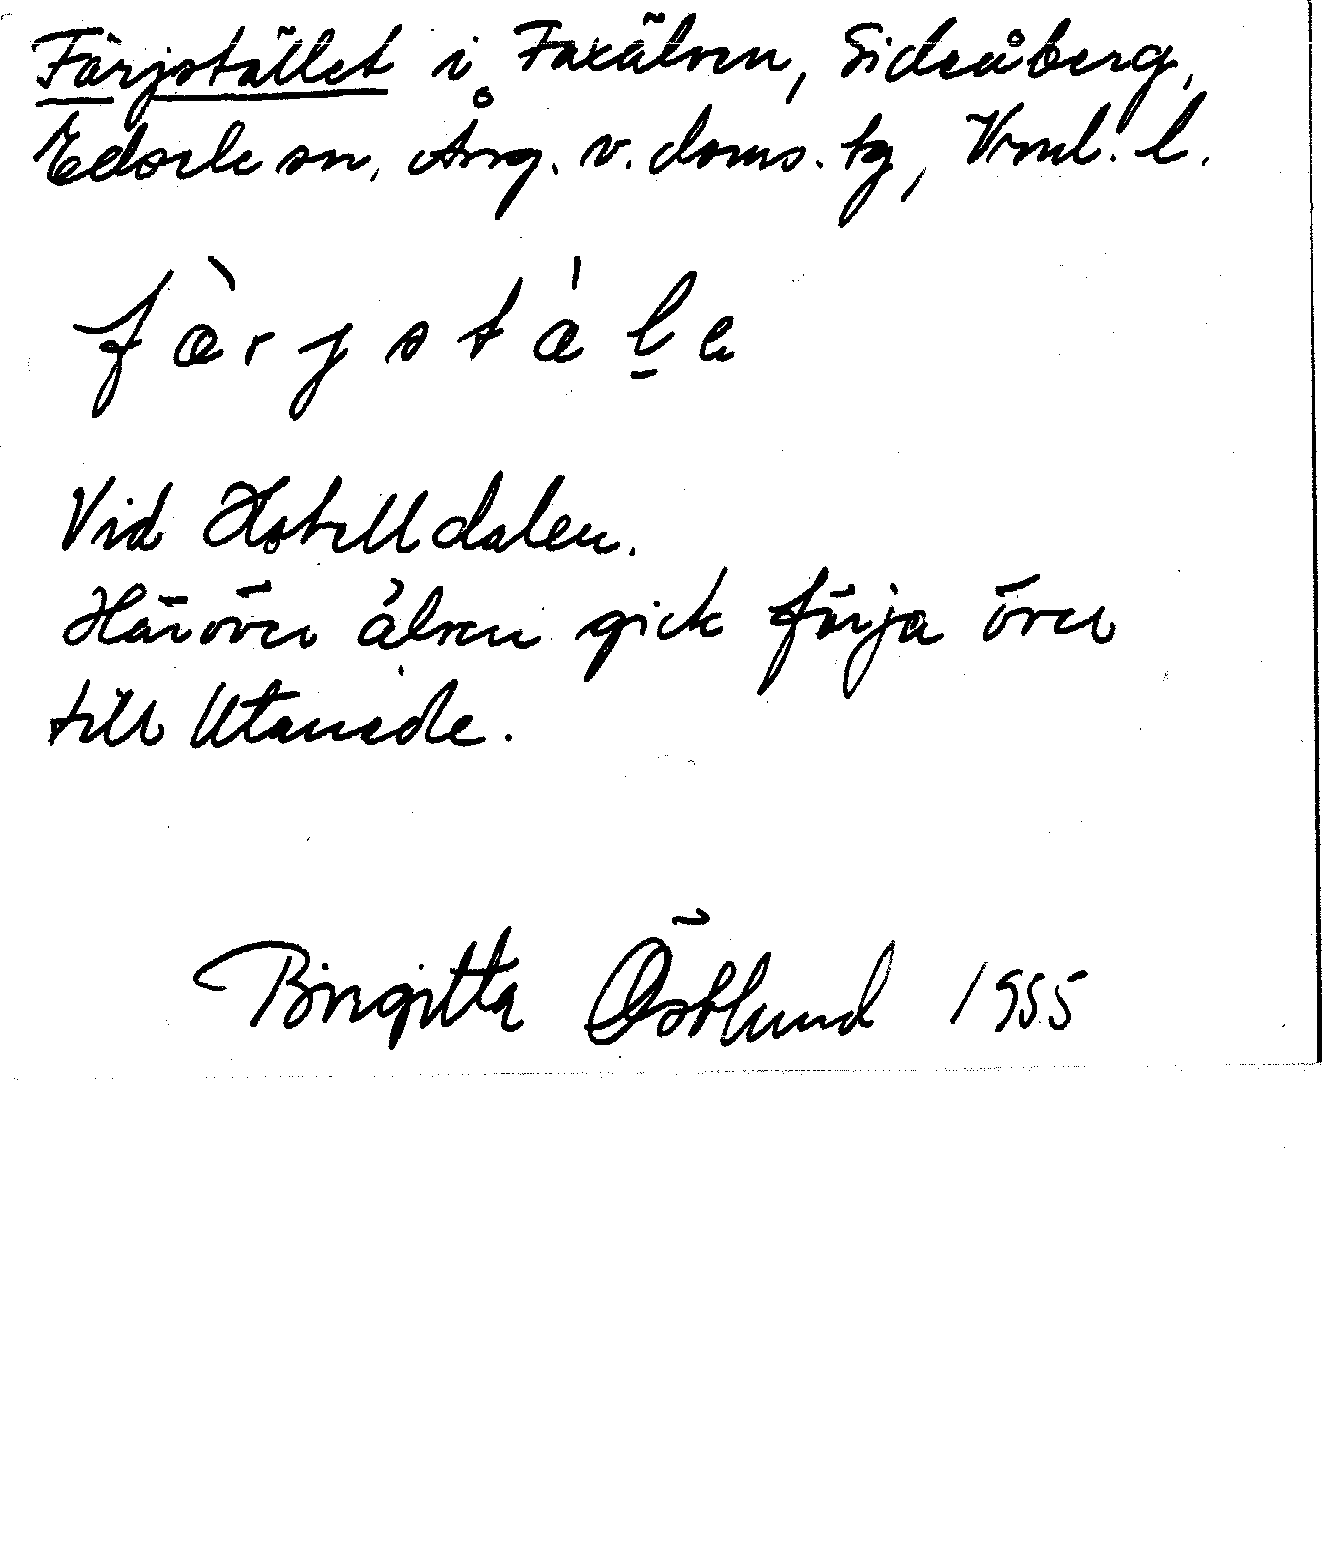 Färjstället i Faxälven, Sideåberg,
Edsele sn, Ång. v. doms. tg, Vnul. l.
f à r j s t á l̠ e
Vid Hotelldalen.
Häröver älven gick färja över
till Utanede.
Birgitta Östlund 1955